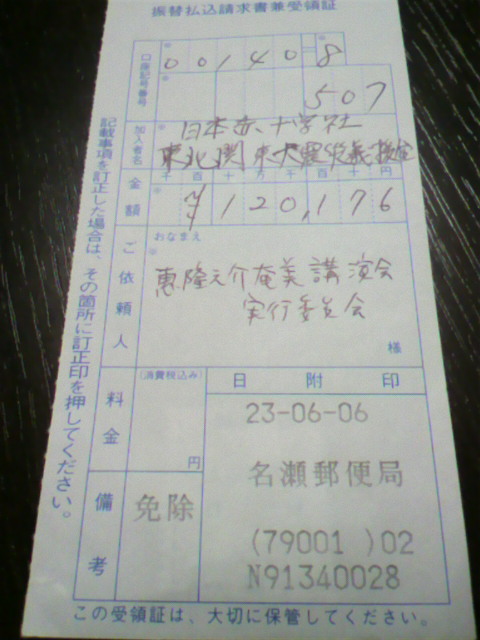 振替払込請求書兼受領証
口座記号番号
00140-8
507
加入者名
日本赤十字社
東北関東大震災義援金
金額
千百十万千百十円
¥120,176
ご依頼人
おなまえ
恵隆之介奄美講演会
実行委員会
様
料金
(消費税込み)
円
日附印
23-06-06
名瀬郵便局
(79001 )02
N91340028
備考
免除
記載事項を訂正した場合は、その箇所に訂正印を押してください。
この受領証は、大切に保管してください。